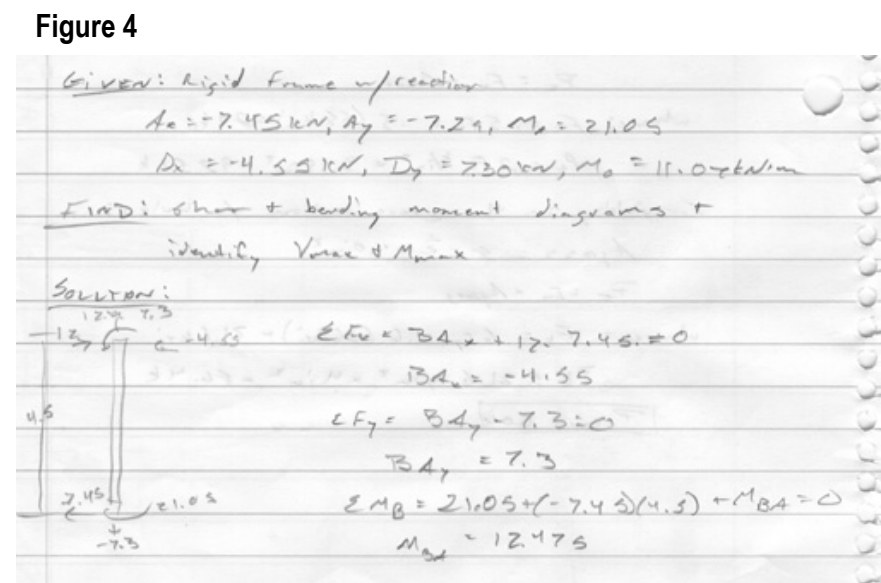 Figure 4
GIVEN: Rigid Frame w/reaction
Ax = -7.45 kN, Ay = -7.29, MA = 21.05
Dx = -4.55 kN, Dy = 7.30 kN, MD = 11.07 kN·m
FIND: shear + bending moment diagrams +
identify Vmax & Mmax
SOLUTION:
7.3
12 -4.55 ΣFx = BAx + 12 - 7.45 = 0
BAx = -4.55
4.5 ΣFy = BAy - 7.3 = 0
BAy = 7.3
7.45 21.05 ΣMB = 21.05 + (-7.45)(4.5) + MBA = 0
-7.3 MBA = 12.475